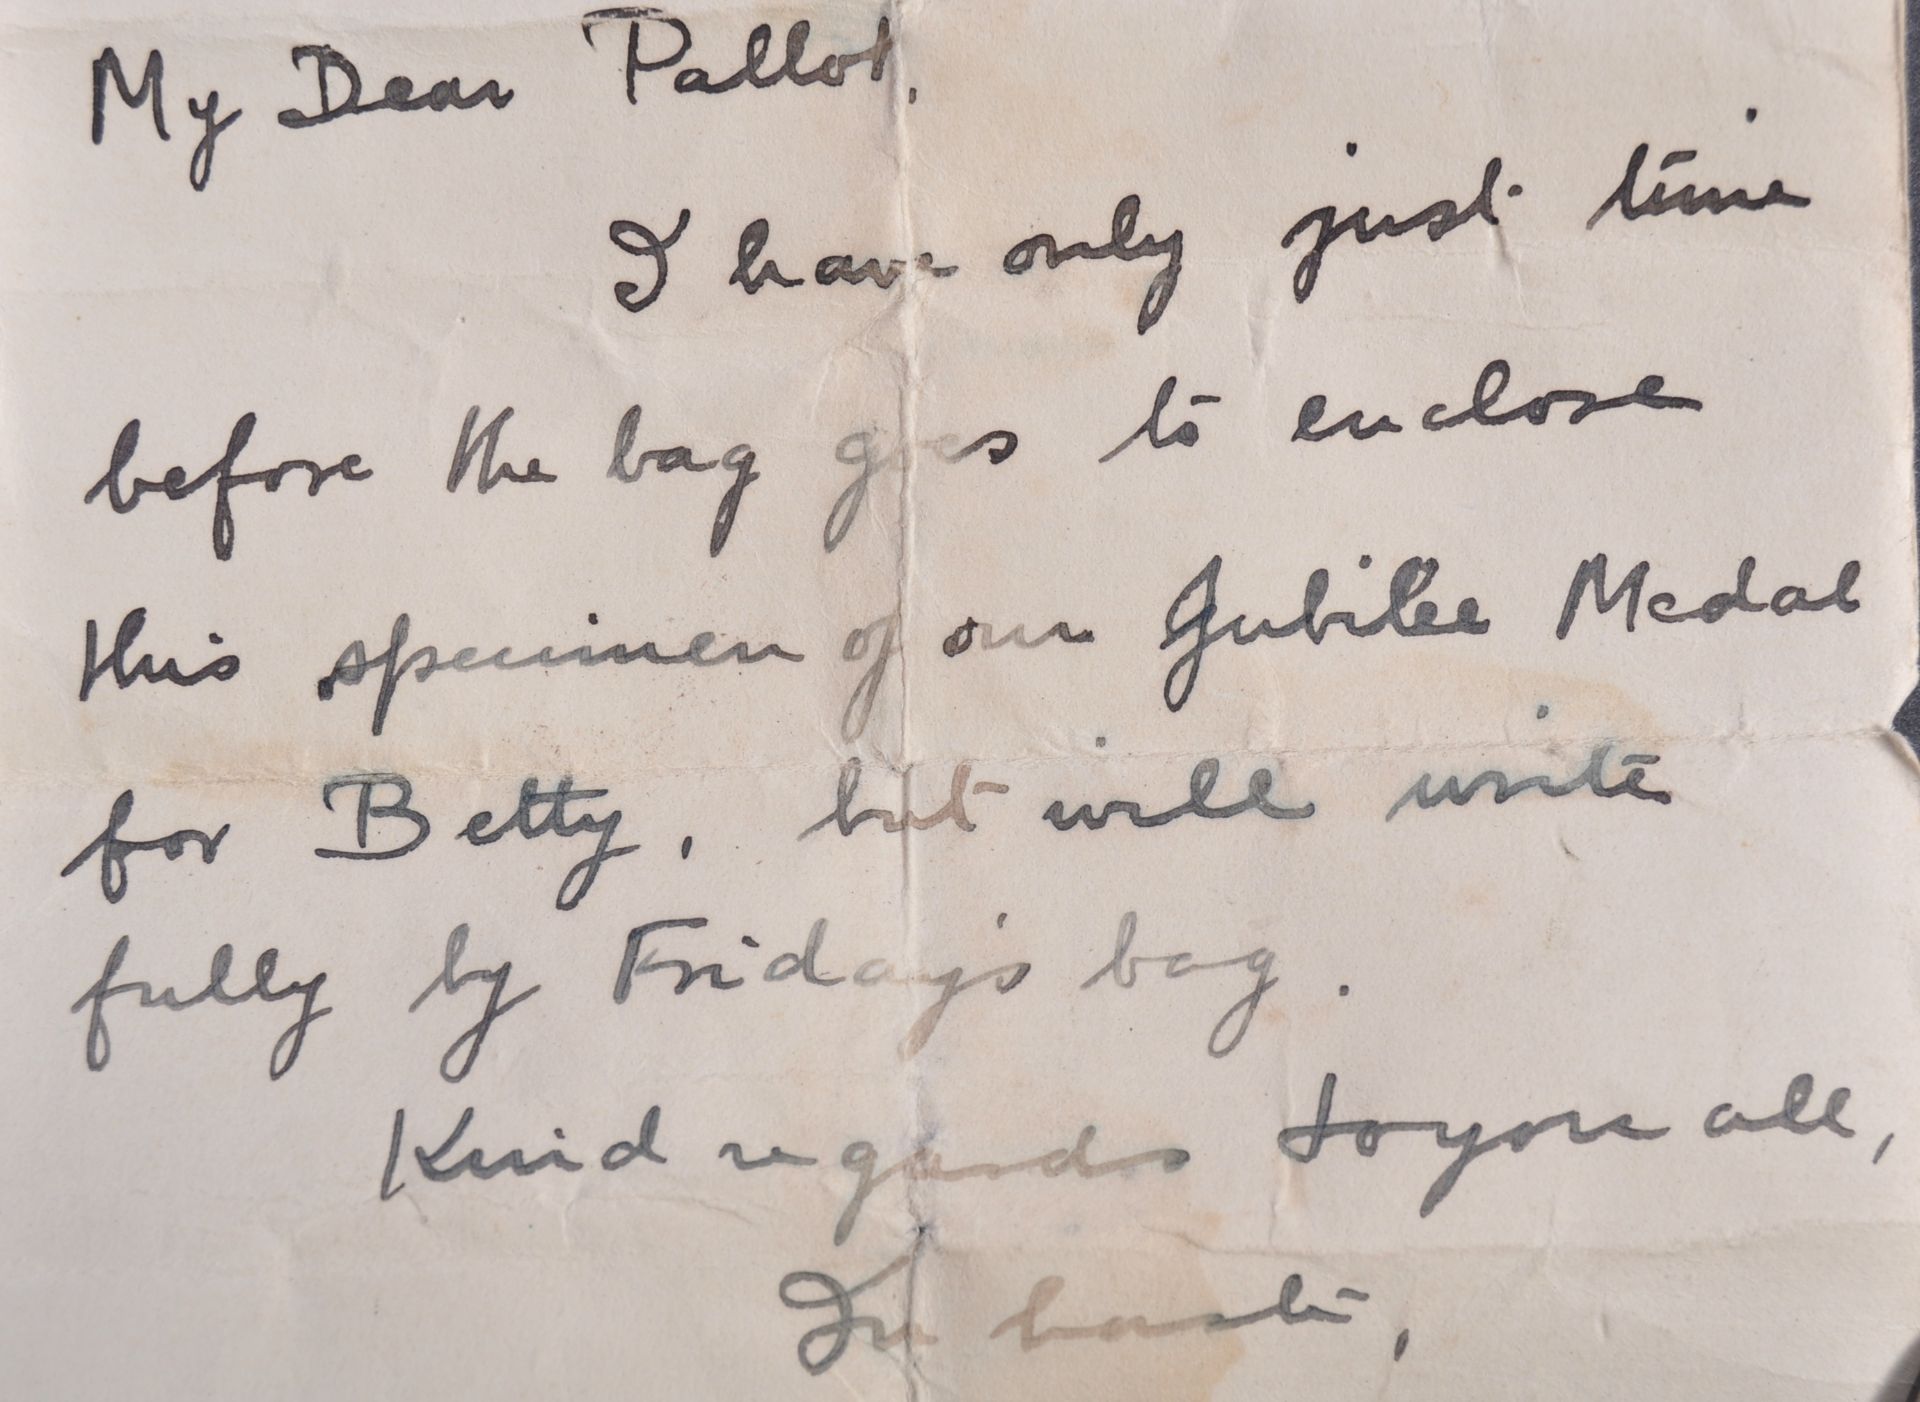 My Dear Pallot,
I have only just time
before the bag goes to enclose
this specimen of our Jubilee Medal
for Betty, but will write
fully by Friday's bag.
Kind regards to you all,
In haste,